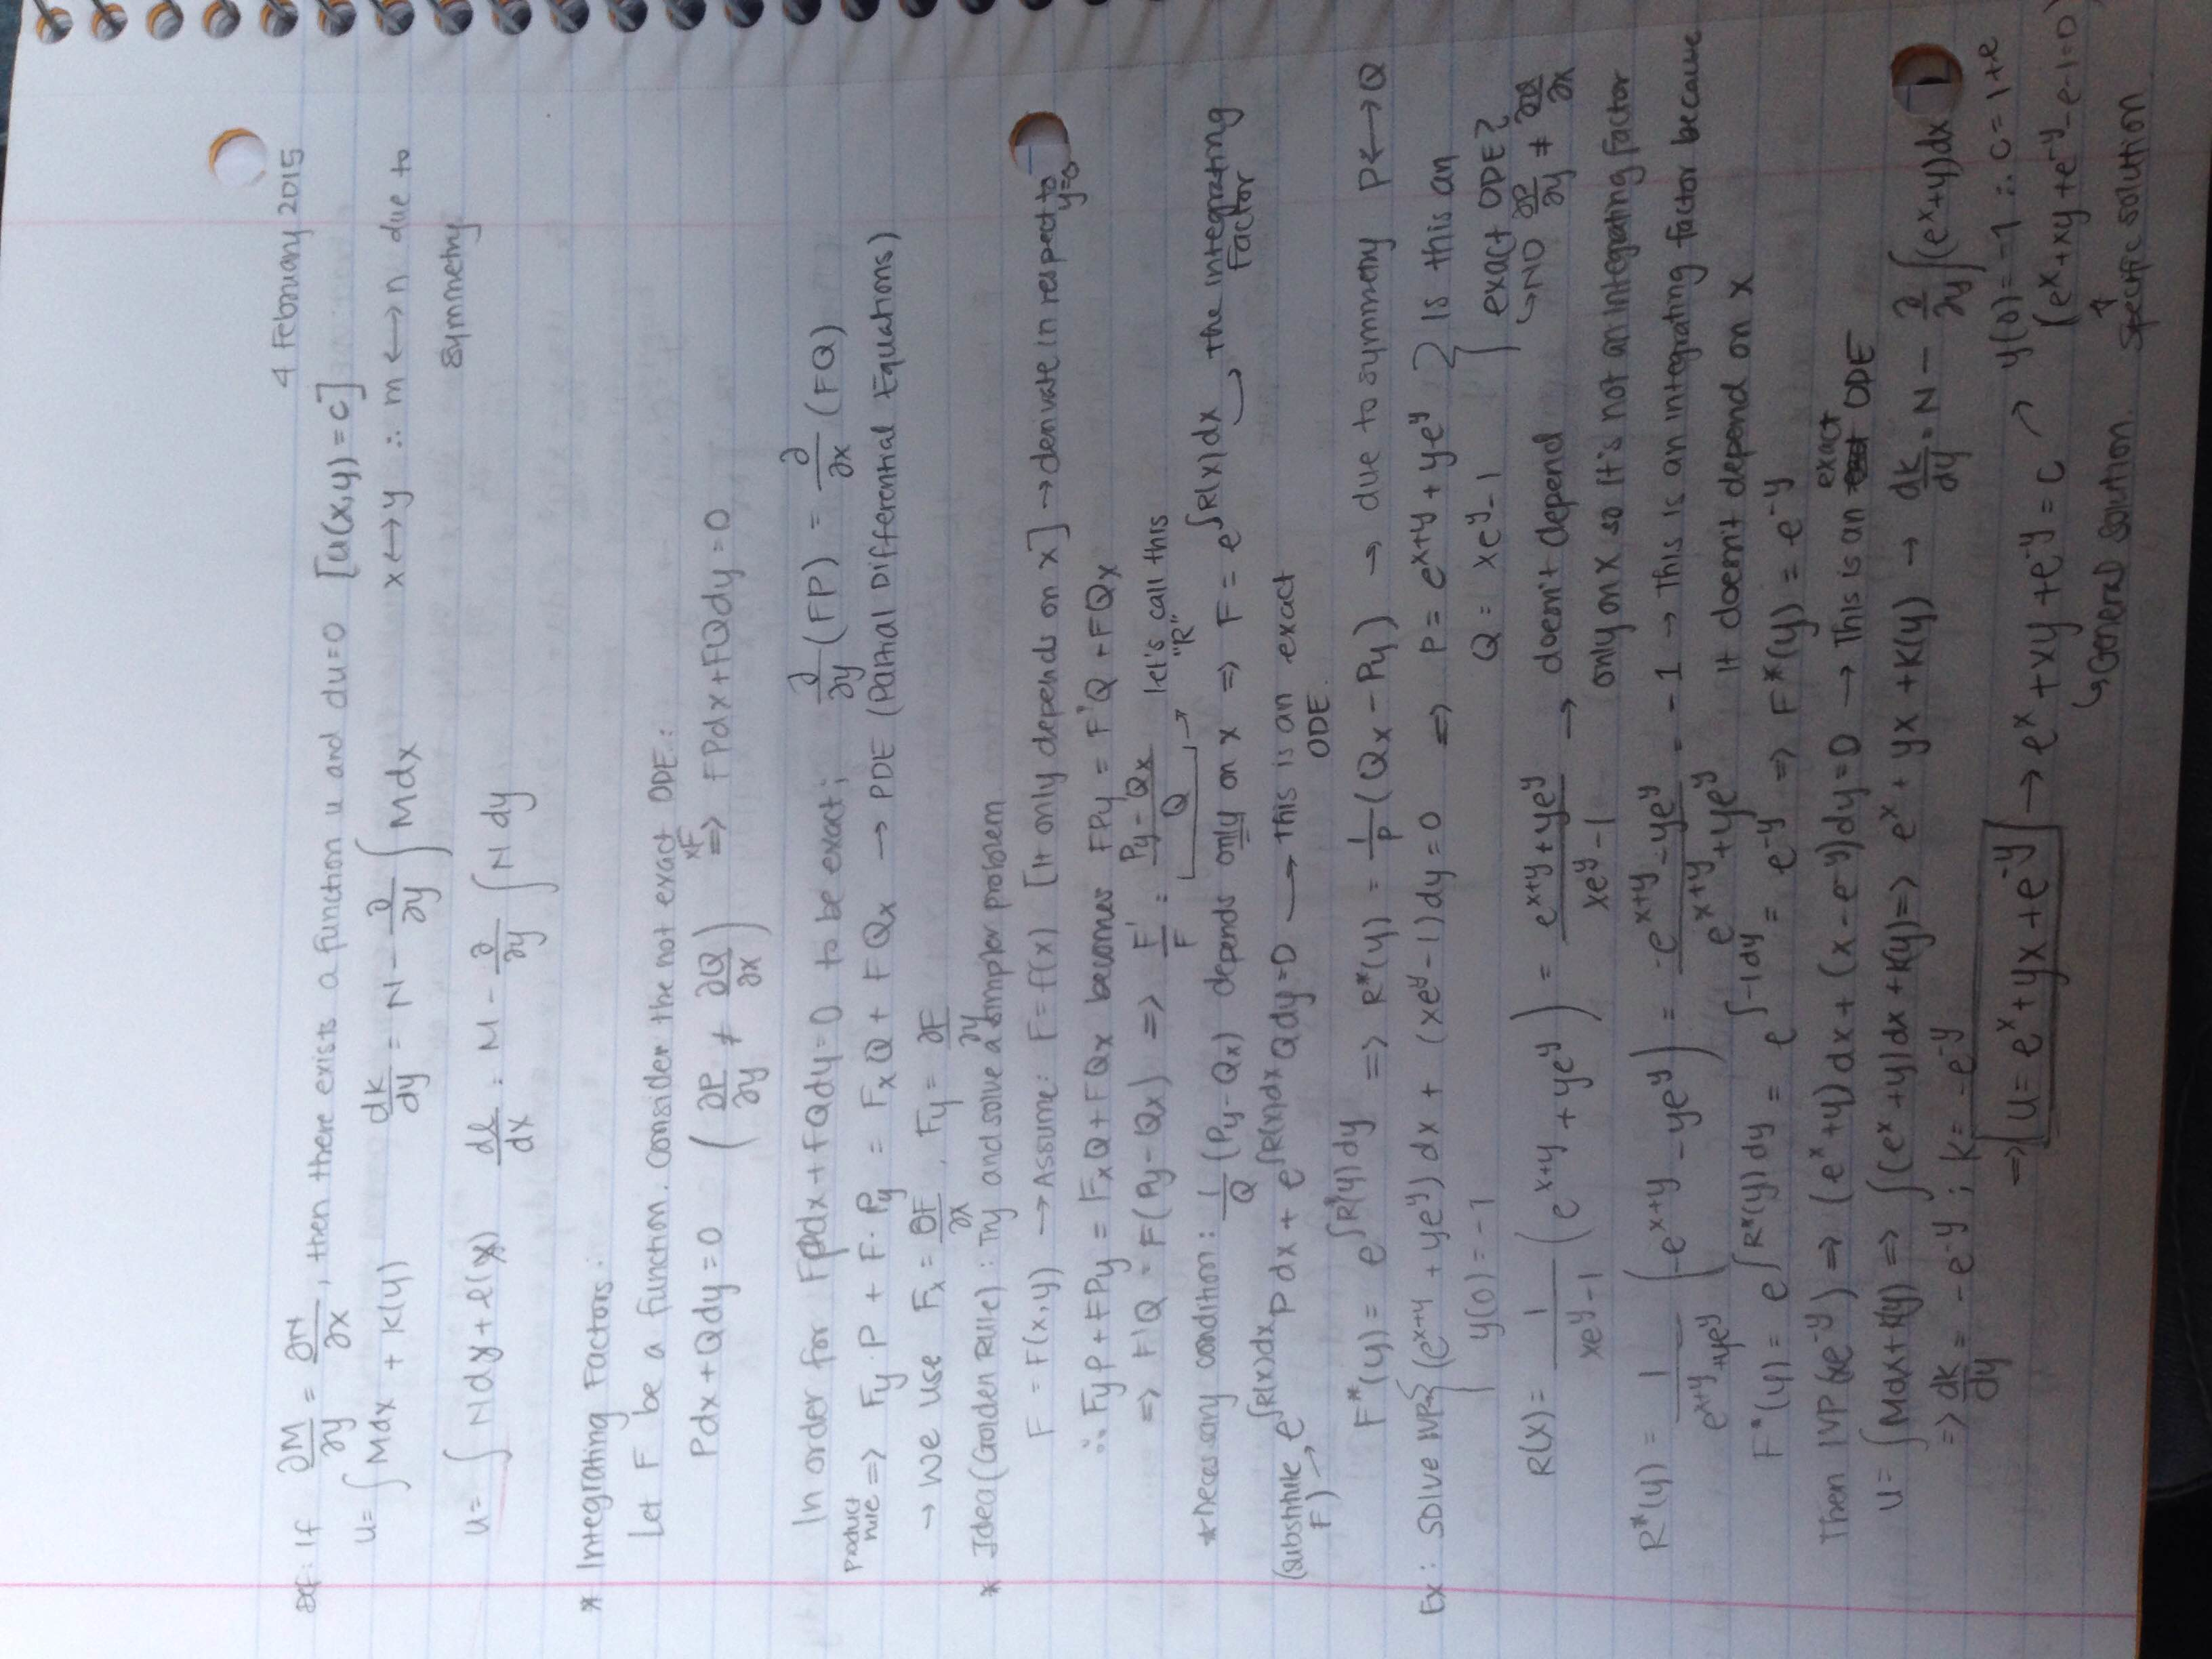 4 February 2015
Def: If ∂M/∂y = ∂N/∂x, then there exists a function u and du=0 [u(x,y)=c]
u= ∫Mdx + k(y) dk/dy = N - ∂/∂y ∫Mdx x↔y ∴ m↔n due to symmetry
u= ∫Ndy + l(x) dl/dx = M - ∂/∂y ∫N dy
* Integrating Factors:
Let F be a function. Consider the not exact ODE:
Pdx+Qdy=0 (∂P/∂y ≠ ∂Q/∂x) xF => FPdx+FQdy=0
In order for FPdx+FQdy=0 to be exact; ∂/∂y(FP) = ∂/∂x(FQ)
product rule => Fy·P + F·Py = FxQ + FQx → PDE (Partial Differential Equations)
→ We use Fx = ∂F/∂x, Fy = ∂F/∂y
* Idea (Golden Rule): Try and solve a simpler problem
F = F(x,y) → Assume: F = f(x) [It only depends on x] → derivate in respect to y=0
∴ FyP + FPy = FxQ + FQx becomes FPy = F'Q + FQx
=> F'Q = F(Py-Qx) => F'/F = (Py-Qx)/Q let's call this "R"
*necessary condition: 1/Q (Py-Qx) depends only on x => F = e^∫R(x)dx → the integrating Factor
(substitute F) → e^∫R(x)dx P dx + e^∫R(x)dx Qdy=0 → This is an exact ODE.
F*(y) = e^∫R*(y)dy => R*(y) = 1/P (Qx-Py) → due to symmetry P↔Q
Ex: Solve IVP { (e^x+y + ye^y)dx + (xe^y-1)dy=0 => P = e^x+y + ye^y } Is this an
y(0)=-1 Q = xe^y-1 exact ODE?
↳NO ∂P/∂y ≠ ∂Q/∂x
R(x) = 1/(xe^y-1) (e^x+y + ye^y) = (e^x+y + ye^y)/(xe^y-1) → doesn't depend
only on x so it's not an integrating factor
R*(y) = 1/(e^x+y + ye^y) (-e^x+y - ye^y) = (-e^x+y - ye^y)/(e^x+y + ye^y) = -1 → This is an integrating factor because
it doesn't depend on x
F*(y) = e^∫R*(y)dy = e^∫-1dy = e^-y => F*(y) = e^-y
Then IVP (xe^-y) => (e^x+y)dx + (x-e^-y)dy=0 → This is an exact ODE
u= ∫Mdx+k(y) => ∫(e^x+y)dx+k(y) => e^x + yx + k(y) → dk/dy = N - ∂/∂y ∫(e^x+y)dx
=> dk/dy = -e^-y ; k= -e^-y y(0)=-1 ∴ c=1+e
=> u= e^x + yx + e^-y → e^x + xy + e^-y = c ↗ (e^x+xy+e^-y-e-1=0)
↳General Solution. ↑ Specific solution